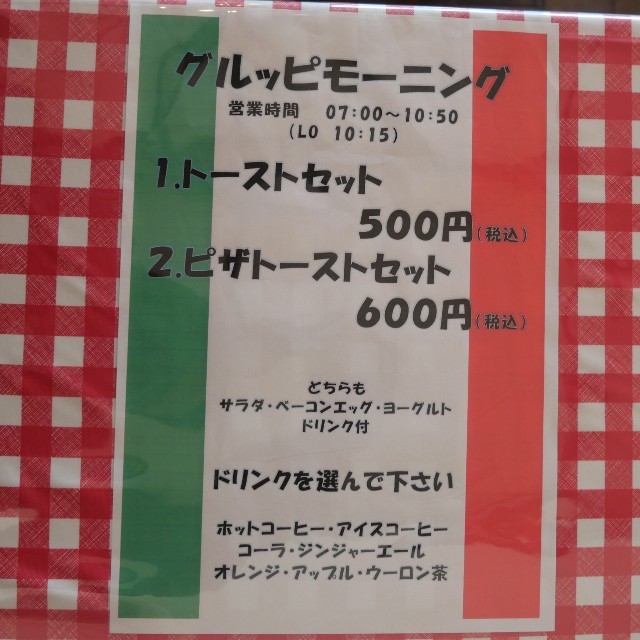 グルッピモーニング
営業時間 07:00～10:50
(LO 10:15)
1.トーストセット
500円(税込)
2.ピザトーストセット
600円(税込)
どちらも
サラダ・ベーコンエッグ・ヨーグルト
ドリンク付
ドリンクを選んで下さい
ホットコーヒー・アイスコーヒー
コーラ・ジンジャーエール
オレンジ・アップル・ウーロン茶